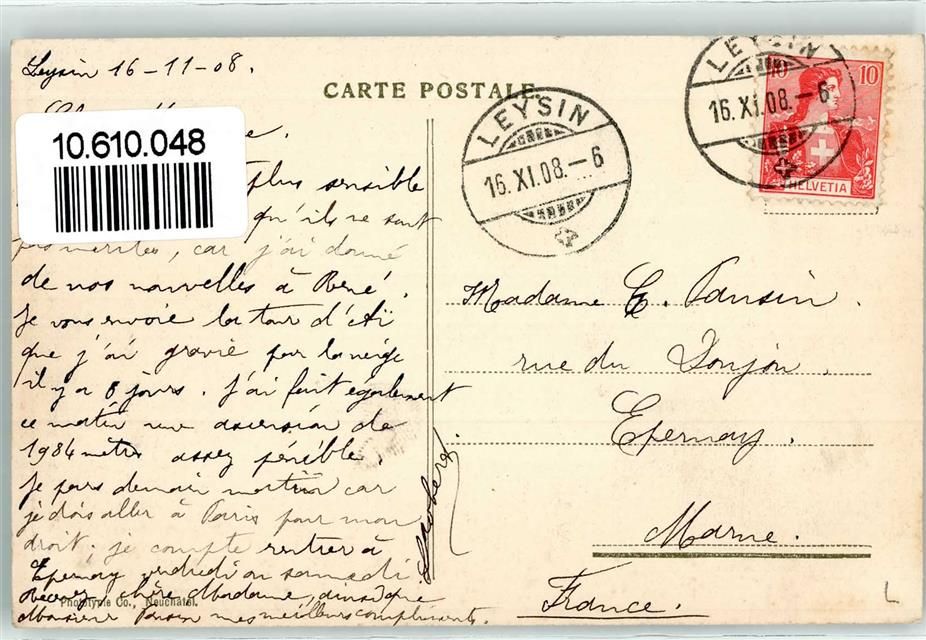 Leysin 16-11-08.
CARTE POSTALE.
10.610.048
plus sensible
qu'ils ne sont
pas mérités, car j'ai donné
de nos nouvelles à René.
Je vous envoie la tour d'Aï
que j'ai gravie par la neige
il y a 8 jours. J'ai fait également
ce matin une ascension de
1984 mètres assez pénible.
Je pars demain matin car
je dois aller à Paris pour mon
droit; je compte rentrer à
Epernay vendredi ou samedi.
Recevez, chère Madame, ainsi que
Monsieur Pansin mes meilleurs compliments.
Phototypie Co., Neuchâtel.
LEYSIN
16.XI.08.-6
LEYSIN
16.XI.08.-6
10 10
HELVETIA
Madame E. Pansin.
rue du Donjon.
Epernay.
Marne.
France.
L